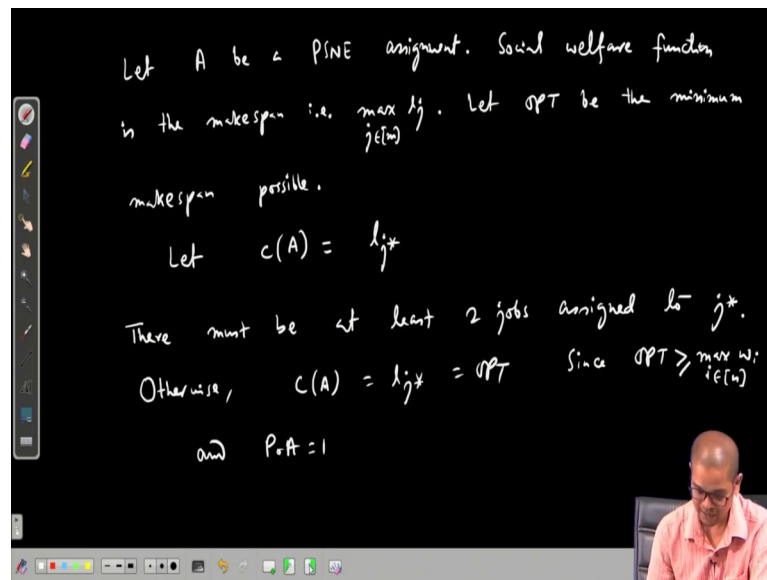 Let A be a PSNE assignment. Social welfare function
is the makespan i.e. max lj. Let OPT be the minimum
j∈[m]
makespan possible.
Let C(A) = lj*
There must be at least 2 jobs assigned to j*.
Otherwise, C(A) = lj* = OPT Since OPT ≥ max wi
i∈[n]
and PoA = 1